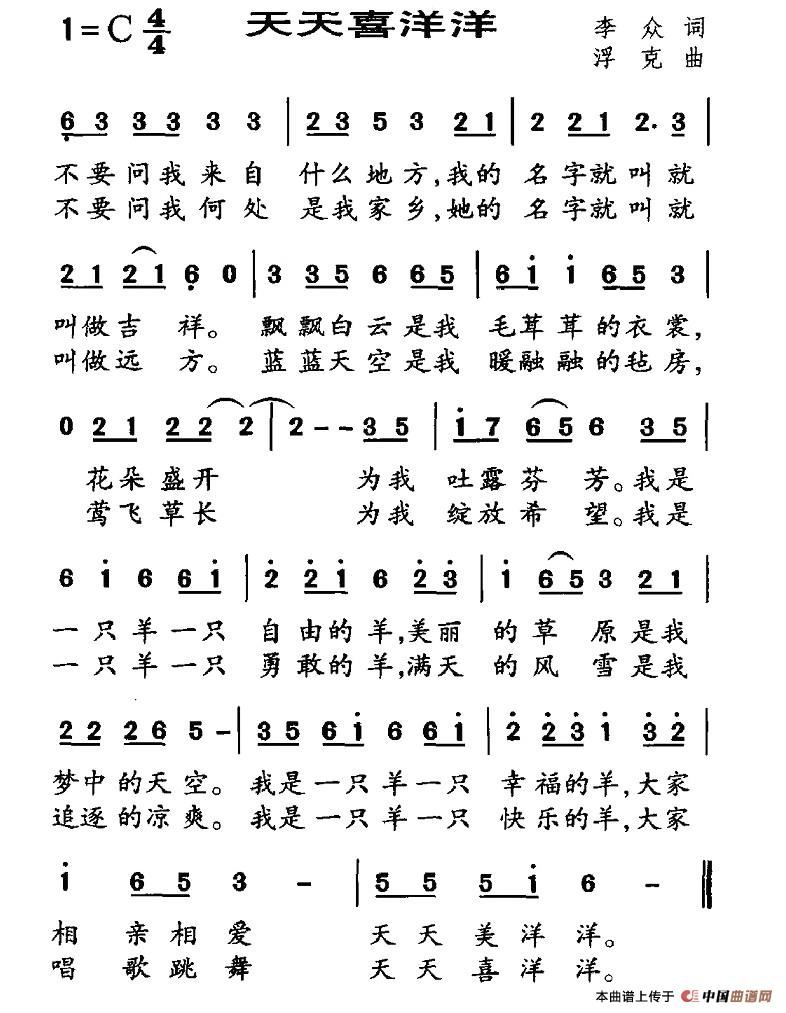 1=C 4/4 天天喜洋洋 李众词
浮克曲
6 3 3 3 3 3 | 2 3 5 3 2 1 | 2 2 1 2· 3 |
不要问我来自 什么地方,我的 名字就叫就
不要问我何处 是我家乡,她的 名字就叫就
2 1 2 1 6 0 | 3 3 5 6 6 5 | 6 i i 6 5 3 |
叫做吉祥。 飘飘白云是我 毛茸茸的衣裳,
叫做远方。 蓝蓝天空是我 暖融融的毡房,
0 2 1 2 2 2 | 2 - - 3 5 | i 7 6 5 6 3 5 |
花朵盛开 为我 吐露芬芳。我是
莺飞草长 为我 绽放希望。我是
6 i 6 6 i | 2 2 i 6 2 3 | i 6 5 3 2 1 |
一只羊一只 自由的羊,美丽 的草原是我
一只羊一只 勇敢的羊,满天 的风雪是我
2 2 2 6 5 - | 3 5 6 i 6 6 i | 2 2 3 i 3 2 |
梦中的天空。 我是一只羊一只 幸福的羊,大家
追逐的凉爽。 我是一只羊一只 快乐的羊,大家
i 6 5 3 - | 5 5 5 i 6 - ‖
相亲相爱 天天美洋洋。
唱歌跳舞 天天喜洋洋。
本曲谱上传于 中国曲谱网